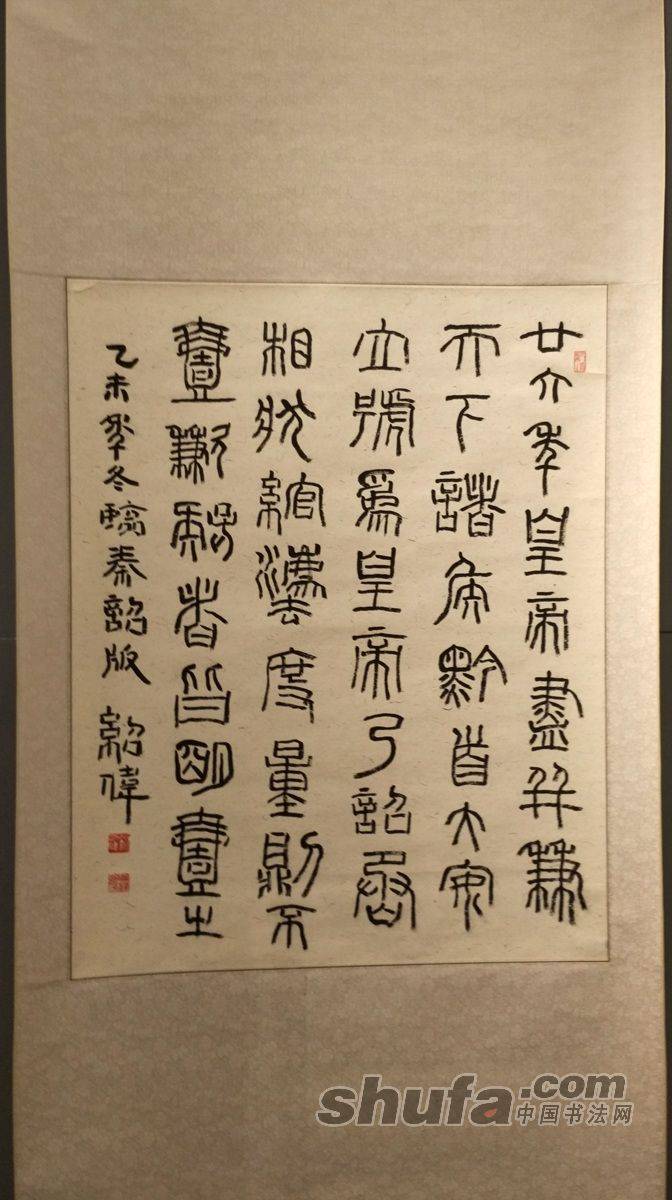 廿六年皇帝盡并兼
天下諸侯黔首大安
立號爲皇帝乃詔丞
相狀綰灋度量則不
壹歉疑者皆明壹之
乙未年冬臨秦詔版 紹偉
shufa.com
中国书法网